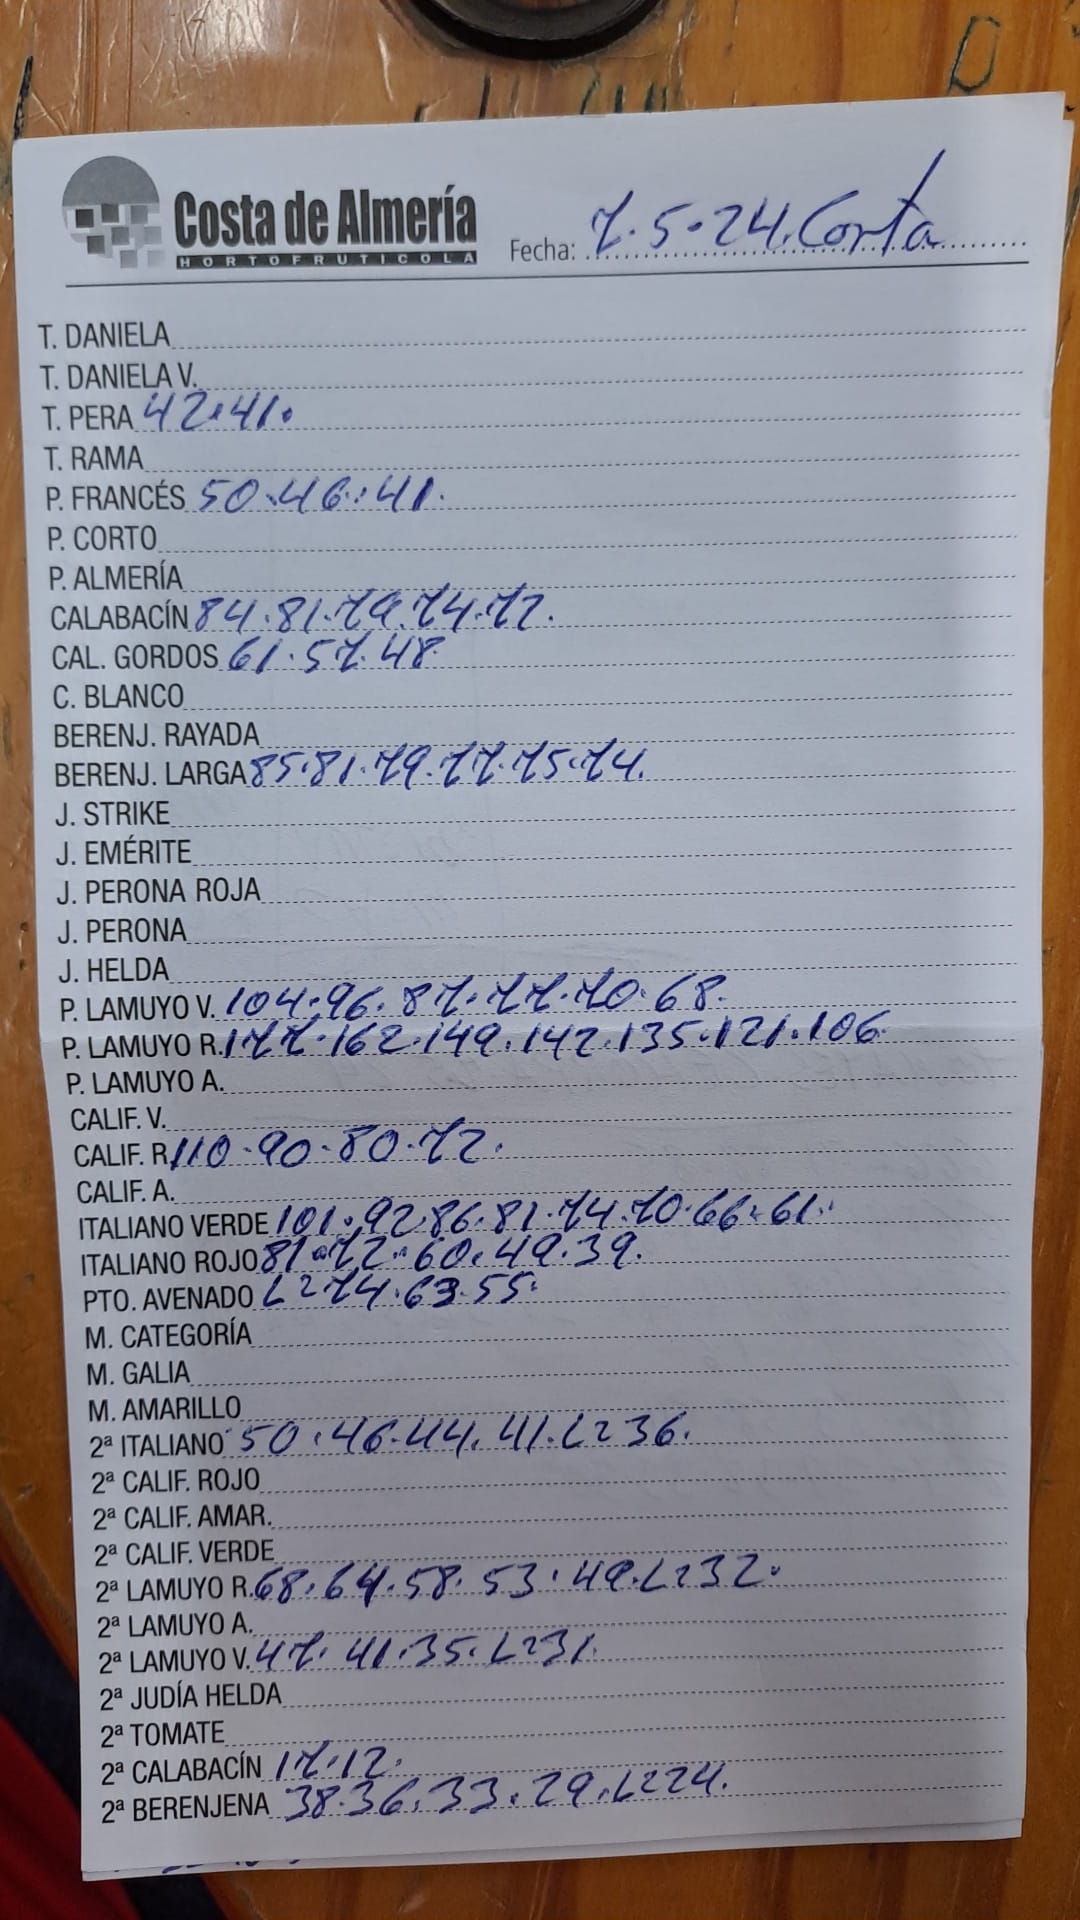 Costa de Almería
HORTOFRUTICOLA
Fecha: 7.5.24. Corta
T. DANIELA
T. DANIELA V.
T. PERA 42.41.
T. RAMA
P. FRANCÉS 50.46.41.
P. CORTO
P. ALMERÍA
CALABACÍN 84.81.79.74.72.
CAL. GORDOS 61.57.48
C. BLANCO
BERENJ. RAYADA
BERENJ. LARGA 85.81.79.77.75.74.
J. STRIKE
J. EMÉRITE
J. PERONA ROJA
J. PERONA
J. HELDA
P. LAMUYO V. 104.96.87.77.70.68.
P. LAMUYO R. 177.162.149.142.135.121.106
P. LAMUYO A.
CALIF. V.
CALIF. R. 110.90.80.72.
CALIF. A.
ITALIANO VERDE 101.92.86.81.74.70.66.61.
ITALIANO ROJO 81.72.60.49.39.
PTO. AVENADO L274.63.55.
M. CATEGORÍA
M. GALIA
M. AMARILLO
2ª ITALIANO 50.46.44.41.L236.
2ª CALIF. ROJO
2ª CALIF. AMAR.
2ª CALIF. VERDE
2ª LAMUYO R. 68.64.58.53.49.L232.
2ª LAMUYO A.
2ª LAMUYO V. 47.41.35.L231.
2ª JUDÍA HELDA
2ª TOMATE
2ª CALABACÍN 17.12.
2ª BERENJENA 38.36.33.29.L224.